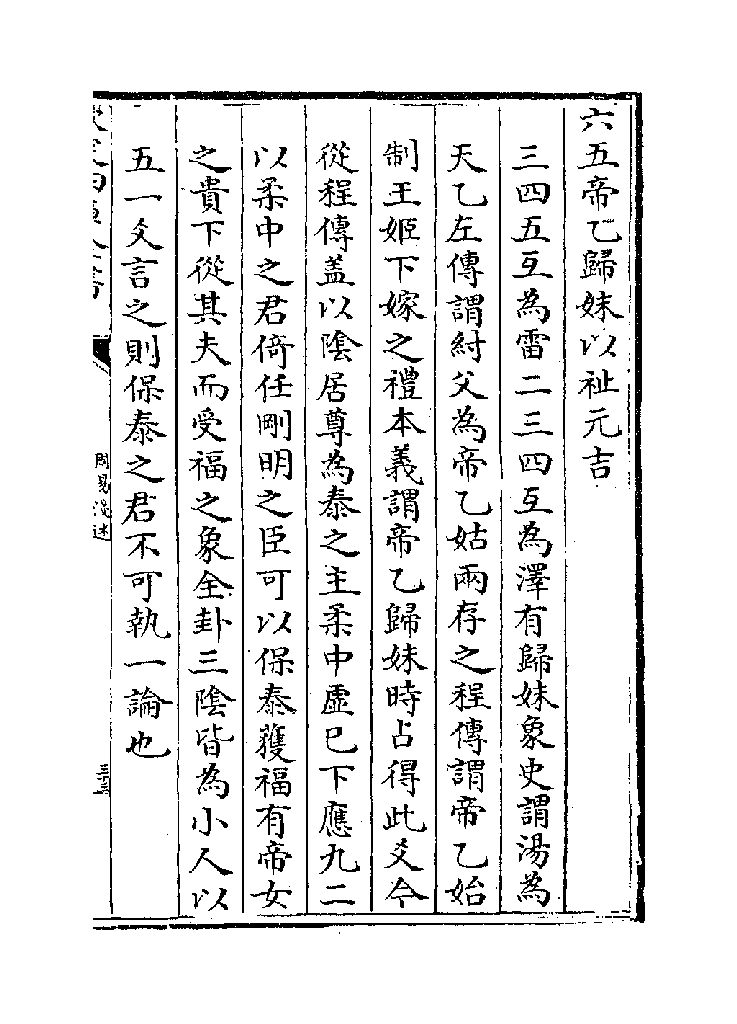 六五帝乙歸妹以祉元吉
三四五互為雷二三四互為澤有歸妹象史謂湯為
天乙左傳謂紂父為帝乙姑兩存之程傳謂帝乙始
制王姬下嫁之禮本義謂帝乙歸妹時占得此爻今
從程傳盖以陰居尊為泰之主柔中虛巳下應九二
以柔中之君倚任剛明之臣可以保泰獲福有帝女
之貴下從其夫而受福之象全卦三陰皆為小人以
五一爻言之則保泰之君不可執一論也
周易淺述